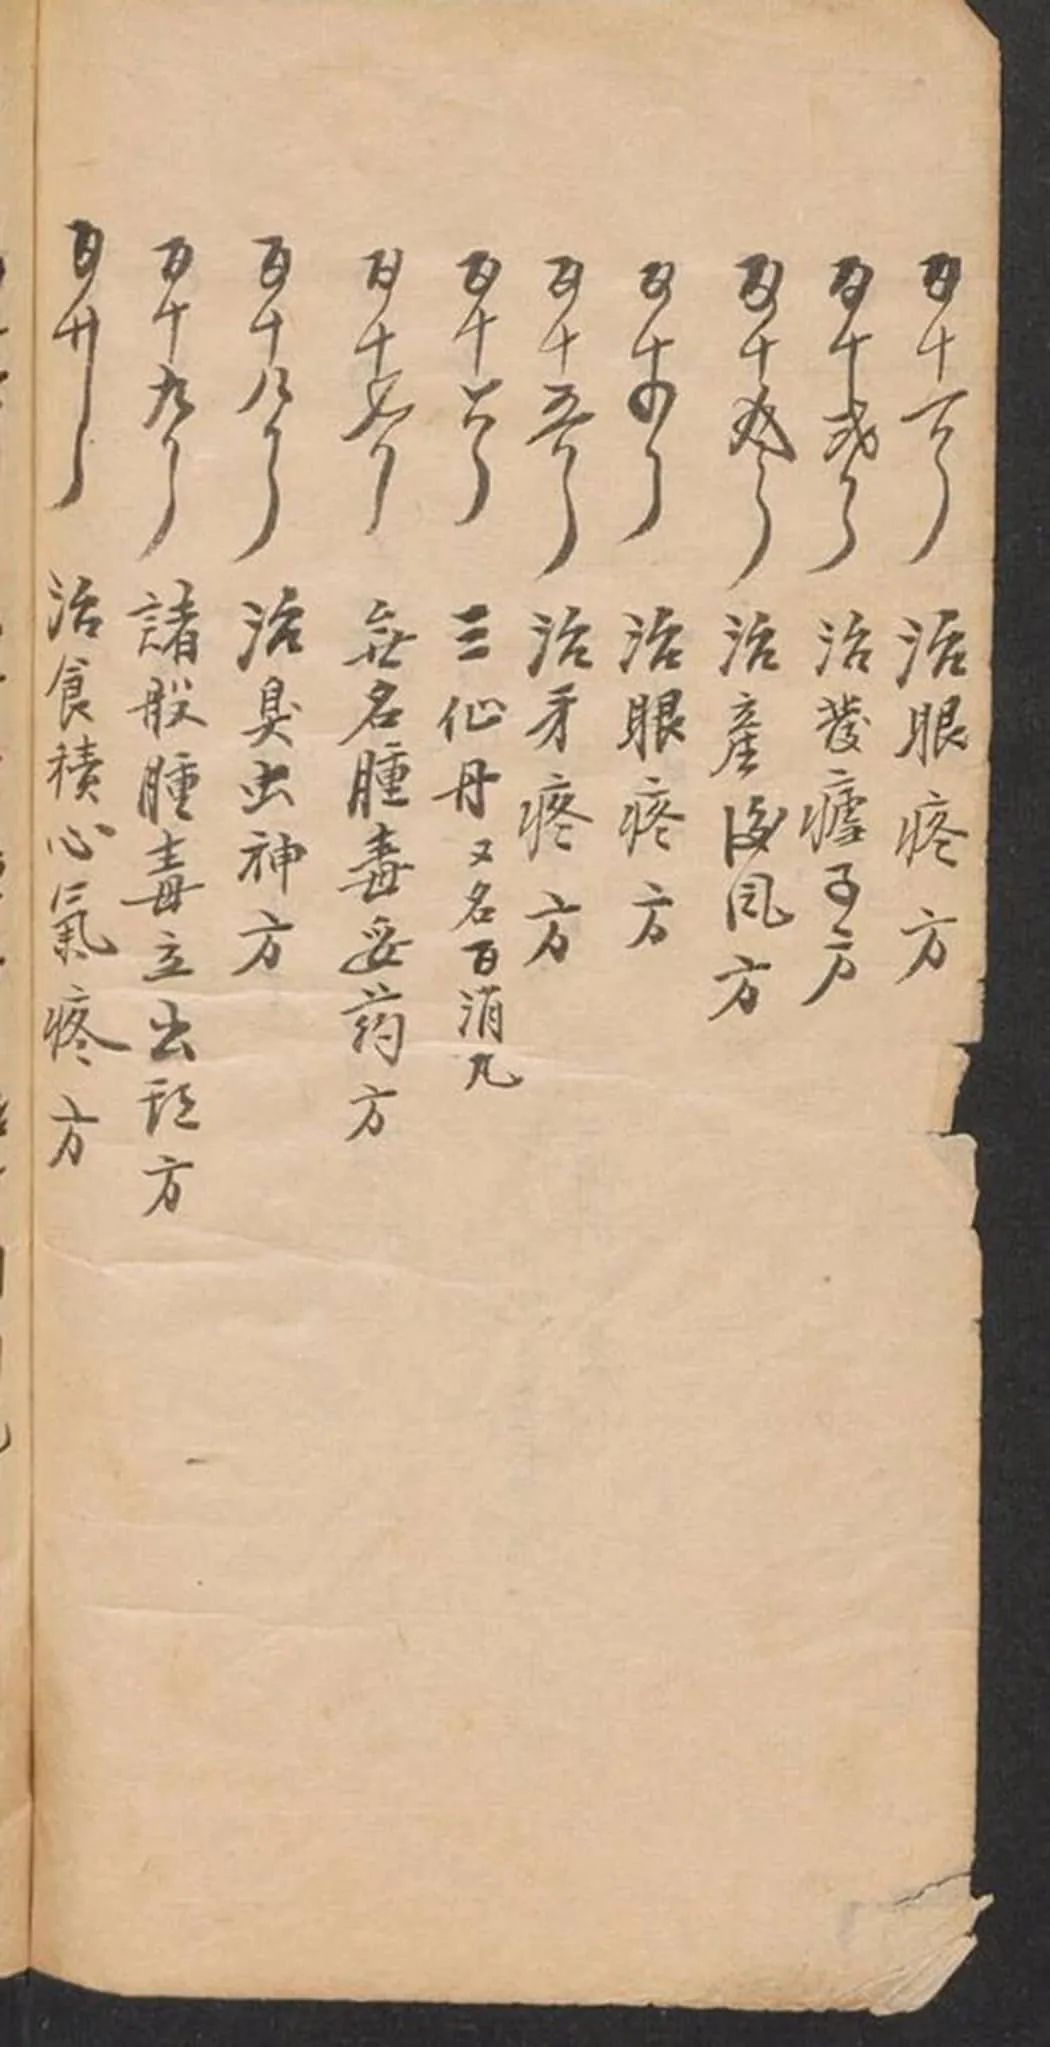 百十一 治眼疼方
百十弍 治發瘧子方
百十叁 治產後風方
百十四 治眼疼方
百十五 治牙疼方
百十六 三仙丹又名百消丸
百十七 無名腫毒妥药方
百十八 治臭虫神方
百十九 諸般腫毒立出頭方
百廿 治食積心氣疼方